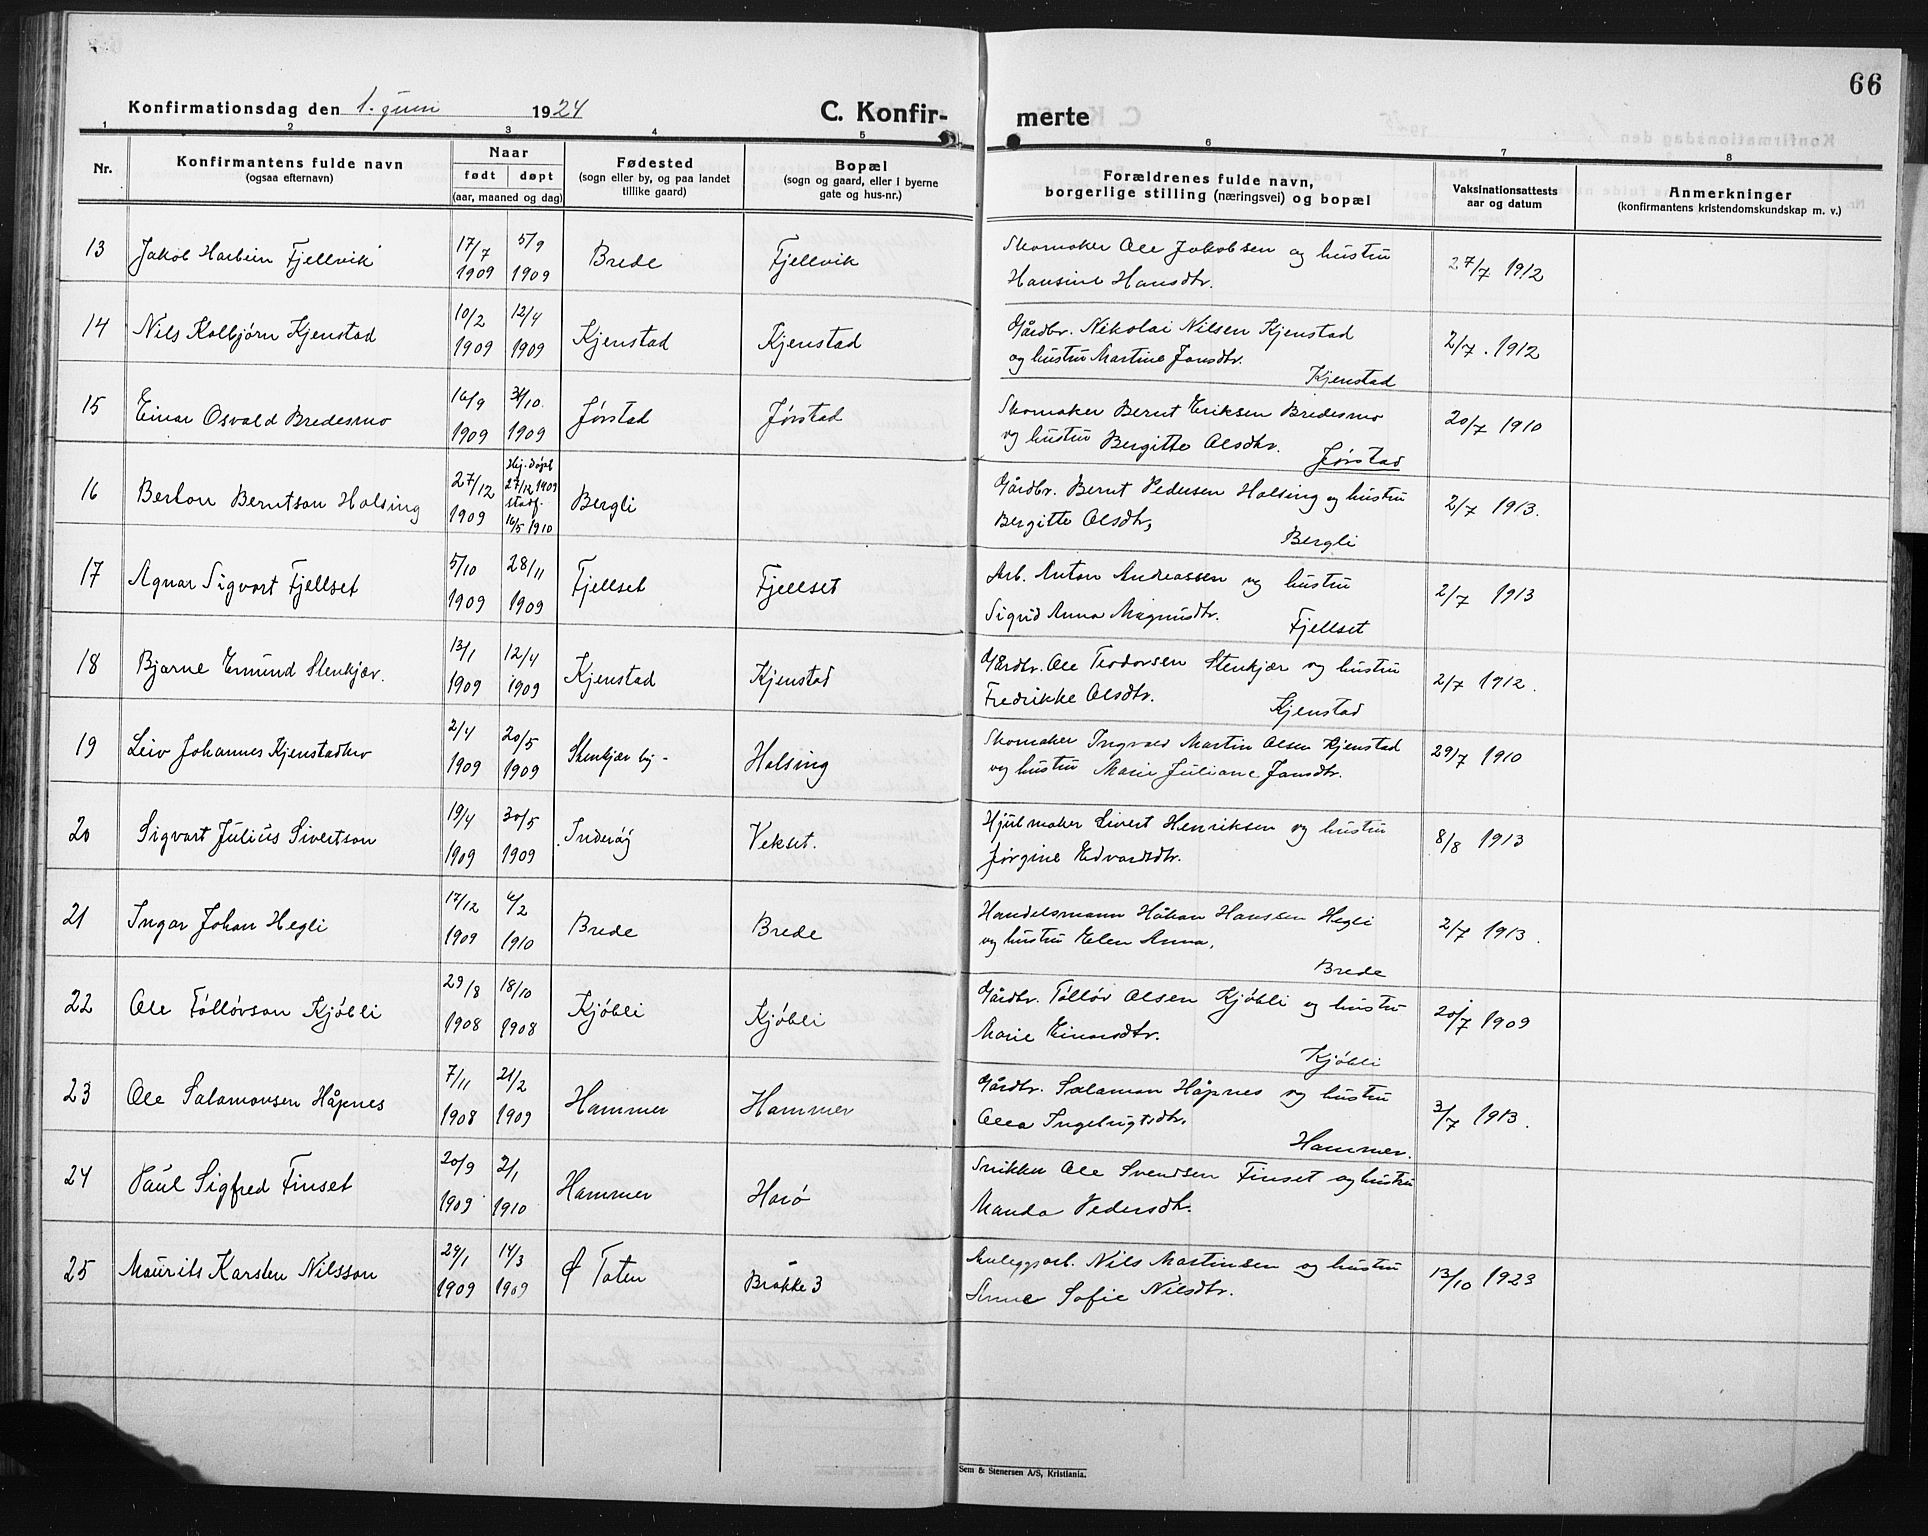 66
Konfirmationsdag den 1. juni 1924
C. Konfir-
merte
1 2 3 4 5 6 7 8
Nr.
Konfirmantens fulde navn
(ogsaa efternavn)
Naar
født døpt
(aar, maaned og dag)
Fødested
(sogn eller by, og paa landet
tillike gaard)
Bopæl
(sogn og gaard, eller i byerne
gate og hus-nr.)
Forældrenes fulde navn,
borgerlige stilling (næringsvei) og bopæl
Vaksinationsattests
aar og datum
Anmerkninger
(konfirmantens kristendomskundskap m. v.)
13 Jakob Fjellvik 17/7 1909 5/9 1909 Brede Fjellvik
Skomaker Ole Jakobsen og hustru
Hansine Hansdtr. 27/7 1912
14 Nils Kolbjørn Kjenstad 10/2 1909 12/4 1909 Kjenstad Kjenstad
Gårdbr. Nikolai Nilsen Kjenstad
og hustru Martine Jonsdtr.
Kjenstad 2/7. 1912
15 Einar Osvald Bredesmo 16/9 1909 31/10. 1909 Jørstad Jørstad
Skomaker Bernt Eriksen Bredesmo
og hustru Bergitte Olsdtr.
Jørstad 20/7 1910
16 Berntson Holsing 27/12 1909 Hj. døpt
27/12 1909
stadf.
16/5 1910 Bergli
Gårdbr. Bernt Pedersen Holsing og hustru
Bergitte Olsdtr,
Bergli 2/7 1913.
17 Agnar Sigvart Fjellset 5/10 1909 28/11 1909 Fjellset Fjellset
Arb. Anton Andreassen og hustru
Sigrid Anna Magnusdtr.
Fjellset 2/7 1913
18 Bjarne Emund Stenkjær. 13/1 1909 12/4 1909 Kjenstad Kjenstad
Gårdbr. Ole Teodorsen Stenkjær og hustru
Fredrikke Olsdtr.
Kjenstad 2/7 1912.
19 Leiv Johannes Kjenstadmo 2/4 1909 20/5 1909 Stenkjær by - Holsing
Skomaker Ingvald Martin Olsen Kjenstad
og hustru Marie Juliane Jonsdtr. 29/7 1910
20 Sigvart Julius Sivertson 19/4 1909 30/5 1909 Inderøy Vekset.
Hjulmaker Sivert Henriksen og hustru
Jørgine Edvardsdtr. 8/8 1913
21 Ingar Johan Hegli 17/12 1909 6/2 1910 Brede Brede
Handelsmann Håkon Hanssen Hegli
og hustru Elen Anna.
Brede 2/7 1913.
22 Ole Tølløvson Kjøbli 29/8 1908 18/10 1908 Kjøbli Kjøbli
Gårdbr. Tølløv Olsen Kjøbli og hustru
Marie Einarsdtr.
Kjøbli 20/7 1909
23 Ole Salamonsen Håpnes 7/11 1908 21/2 1909 Hammer Hammer
Gårdbr. Salamon Håpnes og hustru
Olea Ingebrigtsdtr.
Hammer. 3/7 1913.
24 Paul Sigfred Finset 20/9 1909 2/1 1910 Hammer Horø
Snikker Ole Svendsen Finset og hustru
Manda Pedersdtr.
25 Maurits Karsten Nilsson 29/1 1909 14/3 1909 Ø Toten Brakke 3
Anleggsarb. Nils Martinsen og hustru
Anne Sofie Nilsdtr. 13/10 1923
Sem & Stenersen A/S, Kristiania.